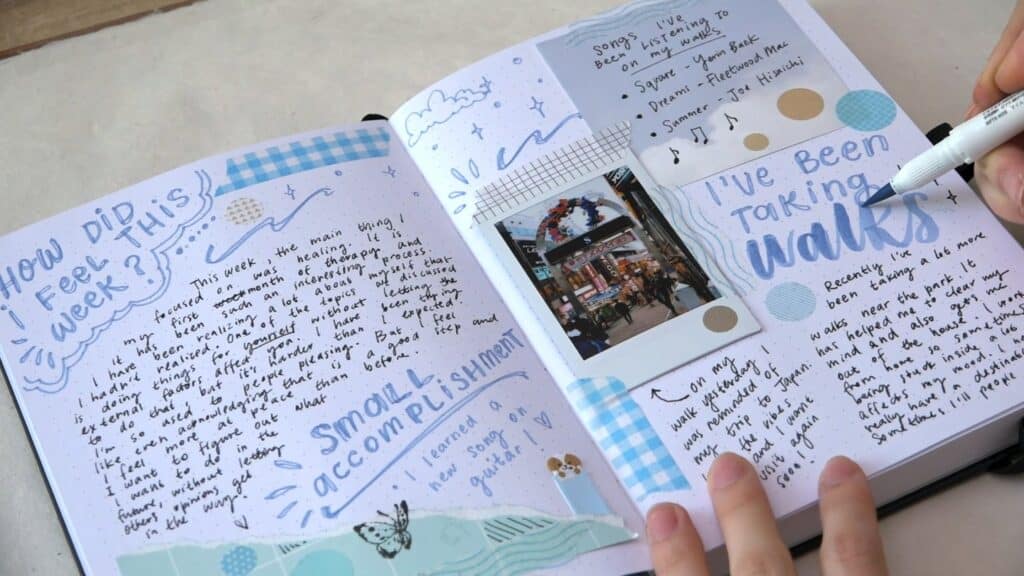 HOW DID
I FEEL THIS
WEEK?
This week the main thing I
focused on was healing. It is
my first month of therapy and
it has been such an interesting process and
I have been realizing a lot about myself that
I hadn't realized. One of the topics discussed
is doing things for yourself without letting the
external factors affect you. I have been
to do that but it's harder than I expected
I'm so used to people pleasing. But I feel
like even acknowledging that is a good step and
I feel more at peace than before.
I want to figure out what
I want to do in the
future, without letting
others opinions get
in the way
SMALL
ACCOMPLISHMENT
• I learned a
new song on
guitar!
SONGS I'VE
BEEN LISTENING TO
ON MY WALKS
• Square - Yerin Baek
• Dreams - Fleetwood Mac
• Summer - Joe Hisaishi
I'VE BEEN
TAKING
WALKS
on my
walk yesterday I
was reminded of
my trip to Japan.
the vibes
and I want
visit again
soon!
Recently I've
been taking a lot more
walks near the park. It
has helped me to clear my
mind and also gets me
out of the house. I work
from home so sometimes
being shut inside
affects my mood. I
really have a destination
sometimes I'll people